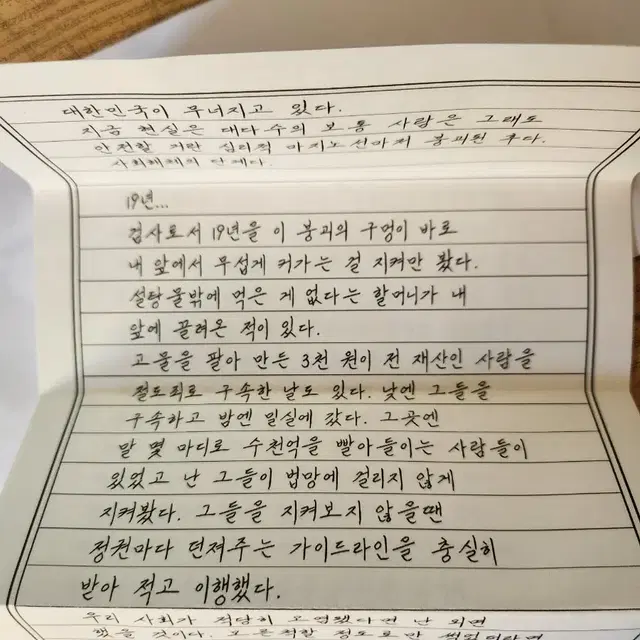 대한민국이 무너지고 있다.
지금 현실은 대다수의 보통 사람은 그래도
안전할 거란 심리적 마지노선마저 붕괴된 후다.
사회해체의 단계다.
19년...
검사로서 19년을 이 붕괴의 구멍이 바로
내 앞에서 무섭게 커가는 걸 지켜만 봤다.
설탕물밖에 먹은 게 없다는 할머니가 내
앞에 끌려온 적이 있다.
고물을 팔아 만든 3천 원이 전 재산인 사람을
절도죄로 구속한 날도 있다. 낮엔 그들을
구속하고 밤엔 밀실에 갔다. 그곳엔
말 몇 마디로 수천억을 빨아들이는 사람들이
있었고 난 그들이 법망에 걸리지 않게
지켜봤다. 그들을 지켜보지 않을땐
정권마다 던져주는 가이드라인을 충실히
받아 적고 이행했다.
우리 사회가 적당히 오염됐다면 난 외면
했을 것이다. 모른척할 정도로만 썩었더라면